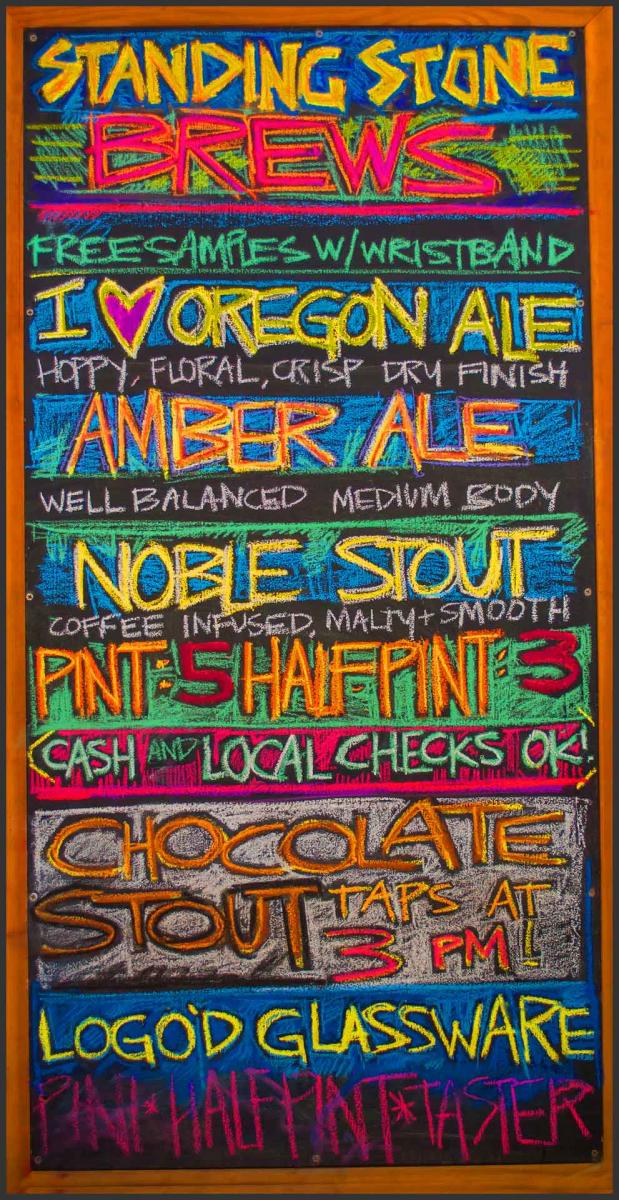 STANDING STONE
BREWS
FREE SAMPLES W/WRISTBAND
I ♥ OREGON ALE
HOPPY, FLORAL, CRISP DRY FINISH
AMBER ALE
WELL BALANCED MEDIUM BODY
NOBLE STOUT
COFFEE INFUSED, MALTY + SMOOTH
PINT: 5 HALF-PINT: 3
CASH AND LOCAL CHECKS OK!
CHOCOLATE
STOUT TAPS AT
3 PM!
LOGO'D GLASSWARE
PINT * HALFPINT * TASTER